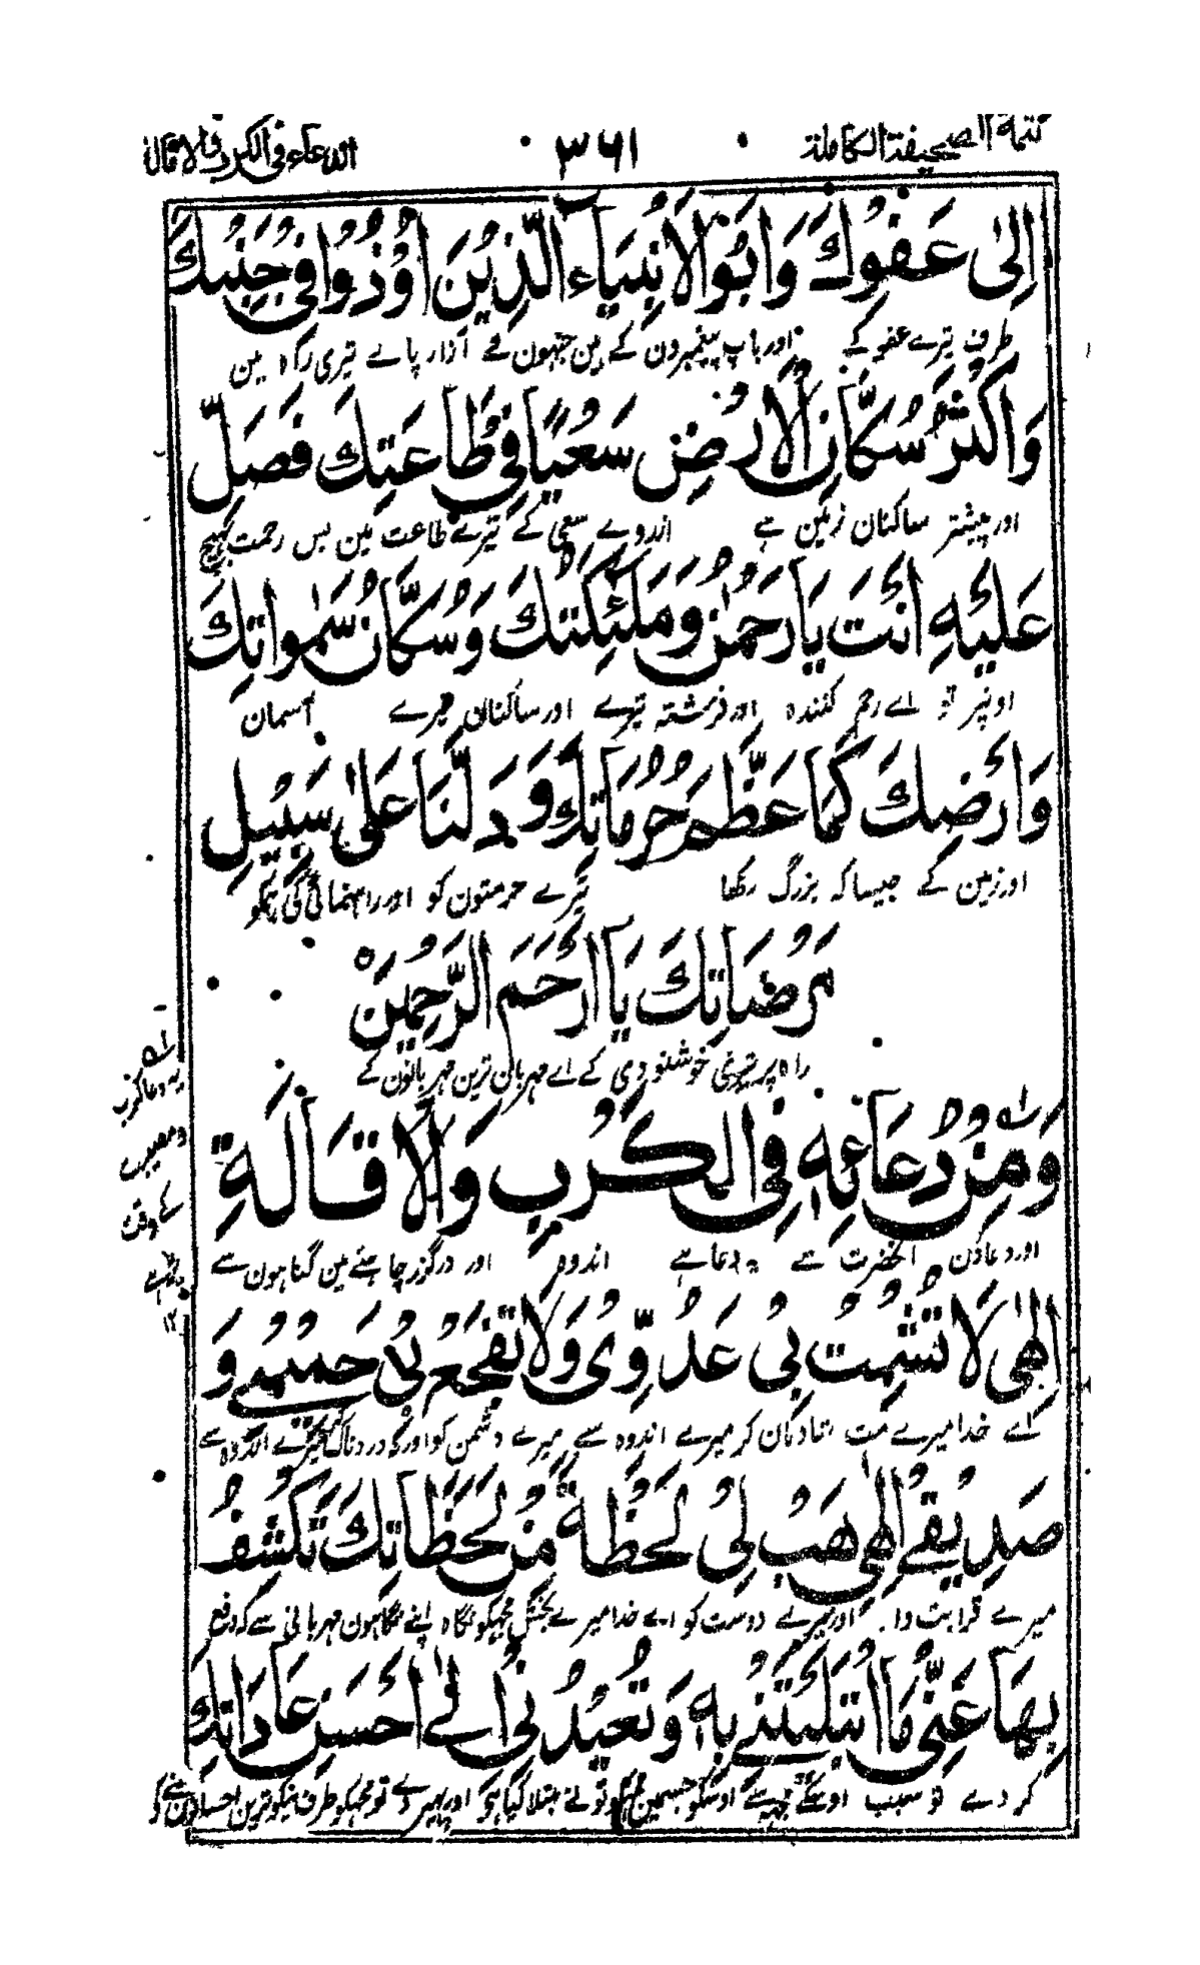 تتمة الصحيفة الكاملة ٣٦١ الدعاء فى الكرب والاقالة
اِلىٰ عَفْوِكَ وَاَبُو الْاَنْبِيَاءِ الَّذِيْنَ اُوْذُوْا فِيْ جَنْبِكَ
طرف تیرے عفو کے اور باپ پیغمبرون کے ہین جنہون نے آزار پائے تیری راہ مین
وَاَكْثَرُ سُكَّانِ الْاَرْضِ سَعْيًا فِيْ طَاعَتِكَ فَصَلِّ
اور بیشتر ساکنان زمین ہے اندوے سعی کے تیرے طاعت مین پس رحمت بھیج
عَلَيْهِ اَنْتَ يَا رَحْمٰنُ وَمَلٰئِكَتُكَ وَسُكَّانُ سَمٰوَاتِكَ
اوپر تو اے رحم کنندہ اور فرشتہ تیرے اور ساکنان تیرے آسمان
وَاَرْضِكَ كَمَا عَظَّمَ حُرُمَاتِكَ وَدَلَّنَا عَلىٰ سَبِيْلِ
اور زمین کے جیسا کہ بزرگ رکھا تیرے حرمتون کو اور راہنمائی کی ہمکو
مَرْضَاتِكَ يَا اَرْحَمَ الرَّاحِمِيْنَ
راہ پر تیری خوشنودی کے اے مہربان ترین مہربانون کے
وَمِنْ دُعَائِهِ فِي الْكَرْبِ وَالْاِقَالَةِ
اور دعاؤن آنحضرت سے دعا ہے اندوہ اور درگزر چاہنے مین گناہون سے
یہ دعا کرب
و مصیبت
کے وقت
۱۲
اِلٰهِيْ لَا تُشْمِتْ بِيْ عَدُوِّيْ وَلَا تُفْجِعْ بِيْ حَمِيْمِيْ وَ
اے خدا میرے مت شادمان کر میرے اندوہ سے میرے دشمن کو اور نہ دردناک میرے اندوہ سے
صَدِيْقِيْ اِلٰهِيْ هَبْ لِيْ لَحْظَةً مِنْ لَحَظَاتِكَ تَكْشِفُ
میرے قرابت دار اور میرے دوست کو اے خدا میرے بخش مجھکو نگاہ اپنے نگاہون مہربانی سے کہ دفع
بِهَا عَنِّيْ مَا ابْتَلَيْتَنِيْ بِهِ وَتُعِيْدُنِيْ اِلىٰ اَحْسَنِ عَادَاتِكَ
کر دے تو سبب اوسکے مجھ سے اوسکو جسمین تونے مبتلا کیا ہو اور پھیر دے تو مجھکو طرف نیکوترین احسانون اپنے کو